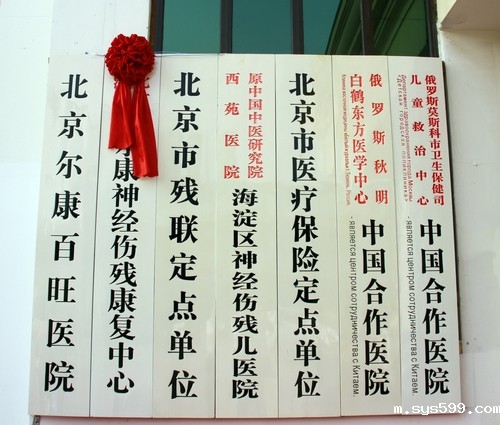 北京尔康百旺医院
康神经伤残康复中心
北京市残联定点单位
原中国中医研究院
西苑医院
海淀区神经伤残儿医院
北京市医疗保险定点单位
俄罗斯秋明
白鹤东方医学中心
中国合作医院
- является центром сотрудничества с Китаем.
俄罗斯莫斯科市卫生保健司
儿童救治中心
Департамент здравоохранения города Москвы
«Детская городская поликлиника»
中国合作医院
- является центром сотрудничества с Китаем.
m.sys599.com